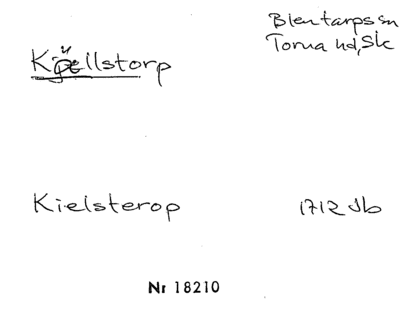 Blentarps sn
Torna hd, Sk
Källstorp
Kielsterop 1712 Jb
Nr 18210